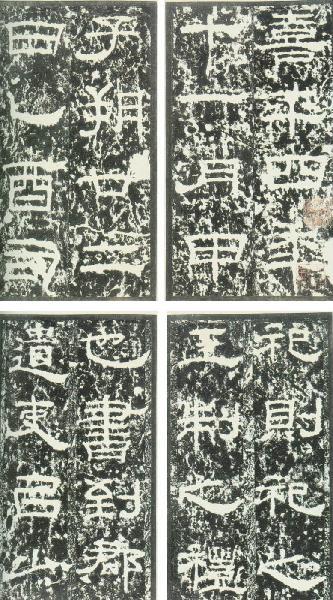 熹平四年
十一月甲
子朔廿二
日乙酉司
祀則祀之
王制之禮
也書到郡
遣吏以少